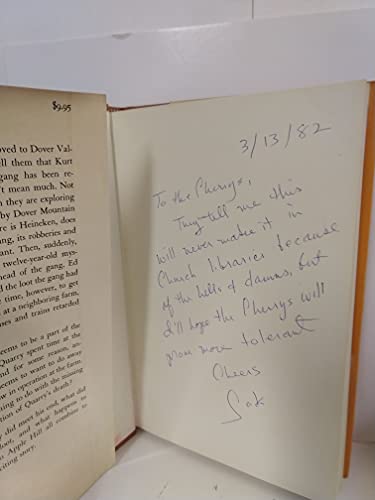 $9.95
oved to Dover Val-
ell them that Kurt
gang has been re-
't mean much. Not
they are exploring
by Dover Mountain
re is Heineken, does
ng, its robberies and
ant. Then, suddenly,
twelve-year-old mys-
head of the gang, Ed
d the loot the gang had
time, however, to get
at a neighboring farm.
nes and trains retarded
eems to be a part of the
Quarry spent time at the
and for some reason, an-
eems to want to do away
w in operation at the farm.
ting to do with the missing
n of Quarry's death?
y did meet his end, what did
loot, and what happens to
n Apple Hill all combine to
citing story.
3/13/82
To the Pherrys,
They tell me this
will never make it in
Church libraries because
of the hells & damns, but
I'll hope the Pherrys will
prove more tolerant
Cheers